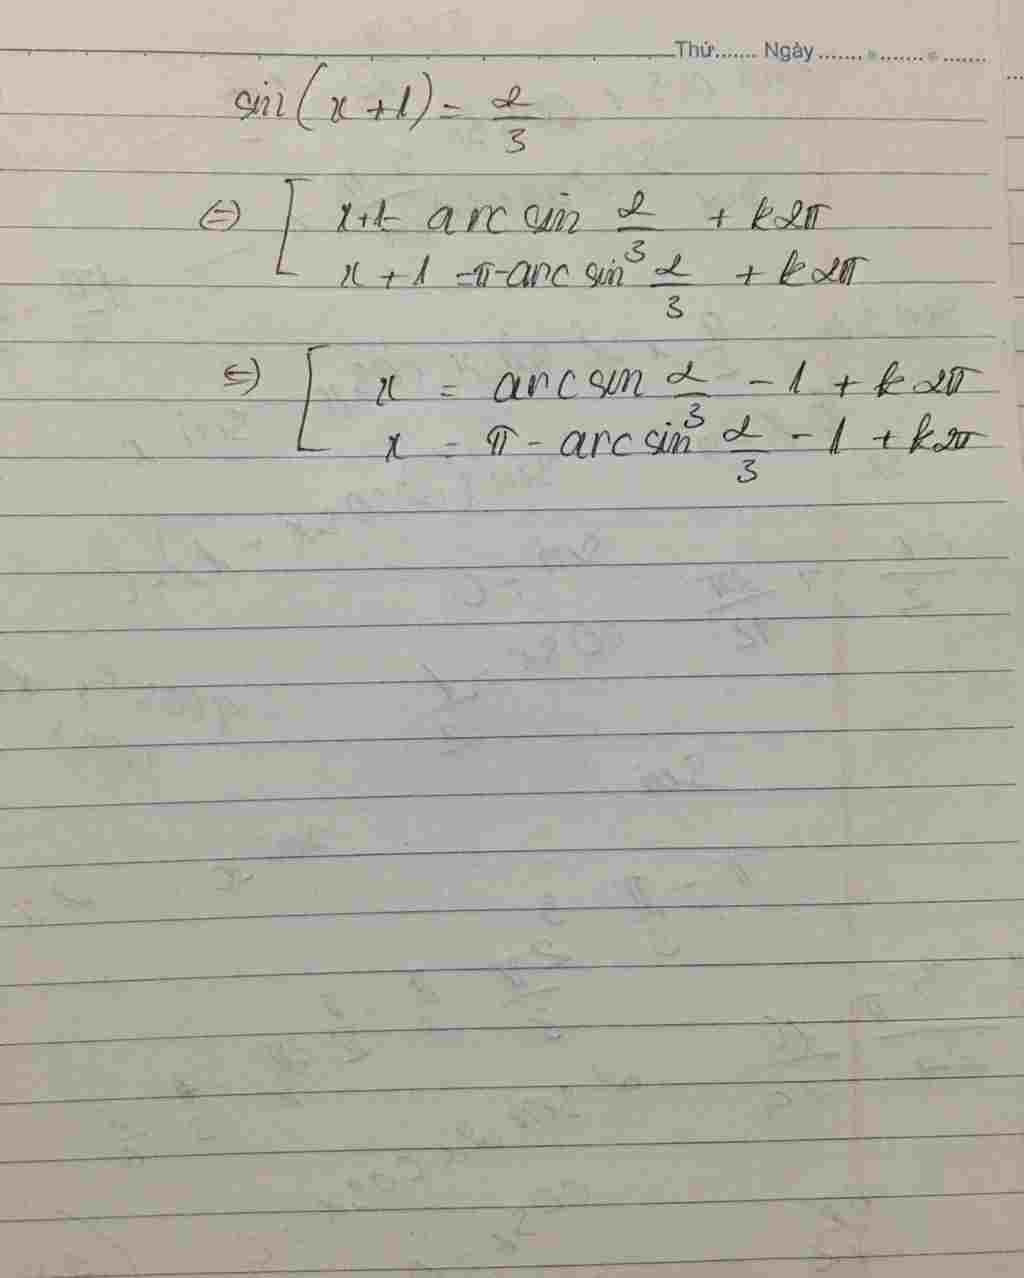 Thứ....... Ngày ....... ....... .......
sin(x+1) = 2/3
(=) [ x+1= arcsin 2/3 + k2π
x+1 =π-arcsin 2/3 + k2π
(=) [ x = arcsin 2/3 - 1 + k2π
x = π - arcsin 2/3 - 1 + k2π